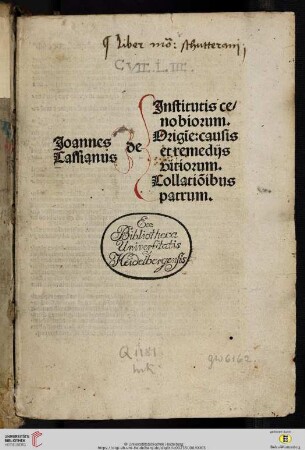 ¶ Liber mō: schutterani
CVII. L. III.
Joannes
Cassianus
de
Institutis ce-
nobiorum.
Origie: causis
et remedijs
vitiorum.
Collatiōibus
patrum.
Ex
Bibliotheca
Universitatis
Heidelbergensis
Q 1181
GW6162
UNIVERSITÄTS-
BIBLIOTHEK
HEIDELBERG
© Universitätsbibliothek Heidelberg